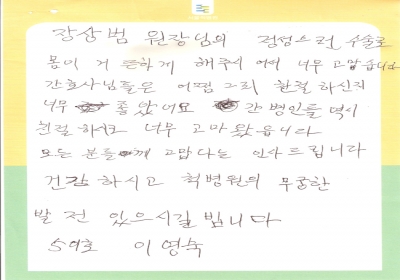 장상범 원장님의 정성스런 수술로
몸이 거 뜬하게 해주시 어서 너무 고맙습니다
간호사님들은 어쩜 그리 친절 하신지
너무 좋았어요 간병인들 역시
친절 하시고 너무 고마왔읍니다
모든 분들께 고맙다는 인사드립니다
건강하시고 척병원의 무궁한
발전 있으시길 빕니다
509호 이영숙